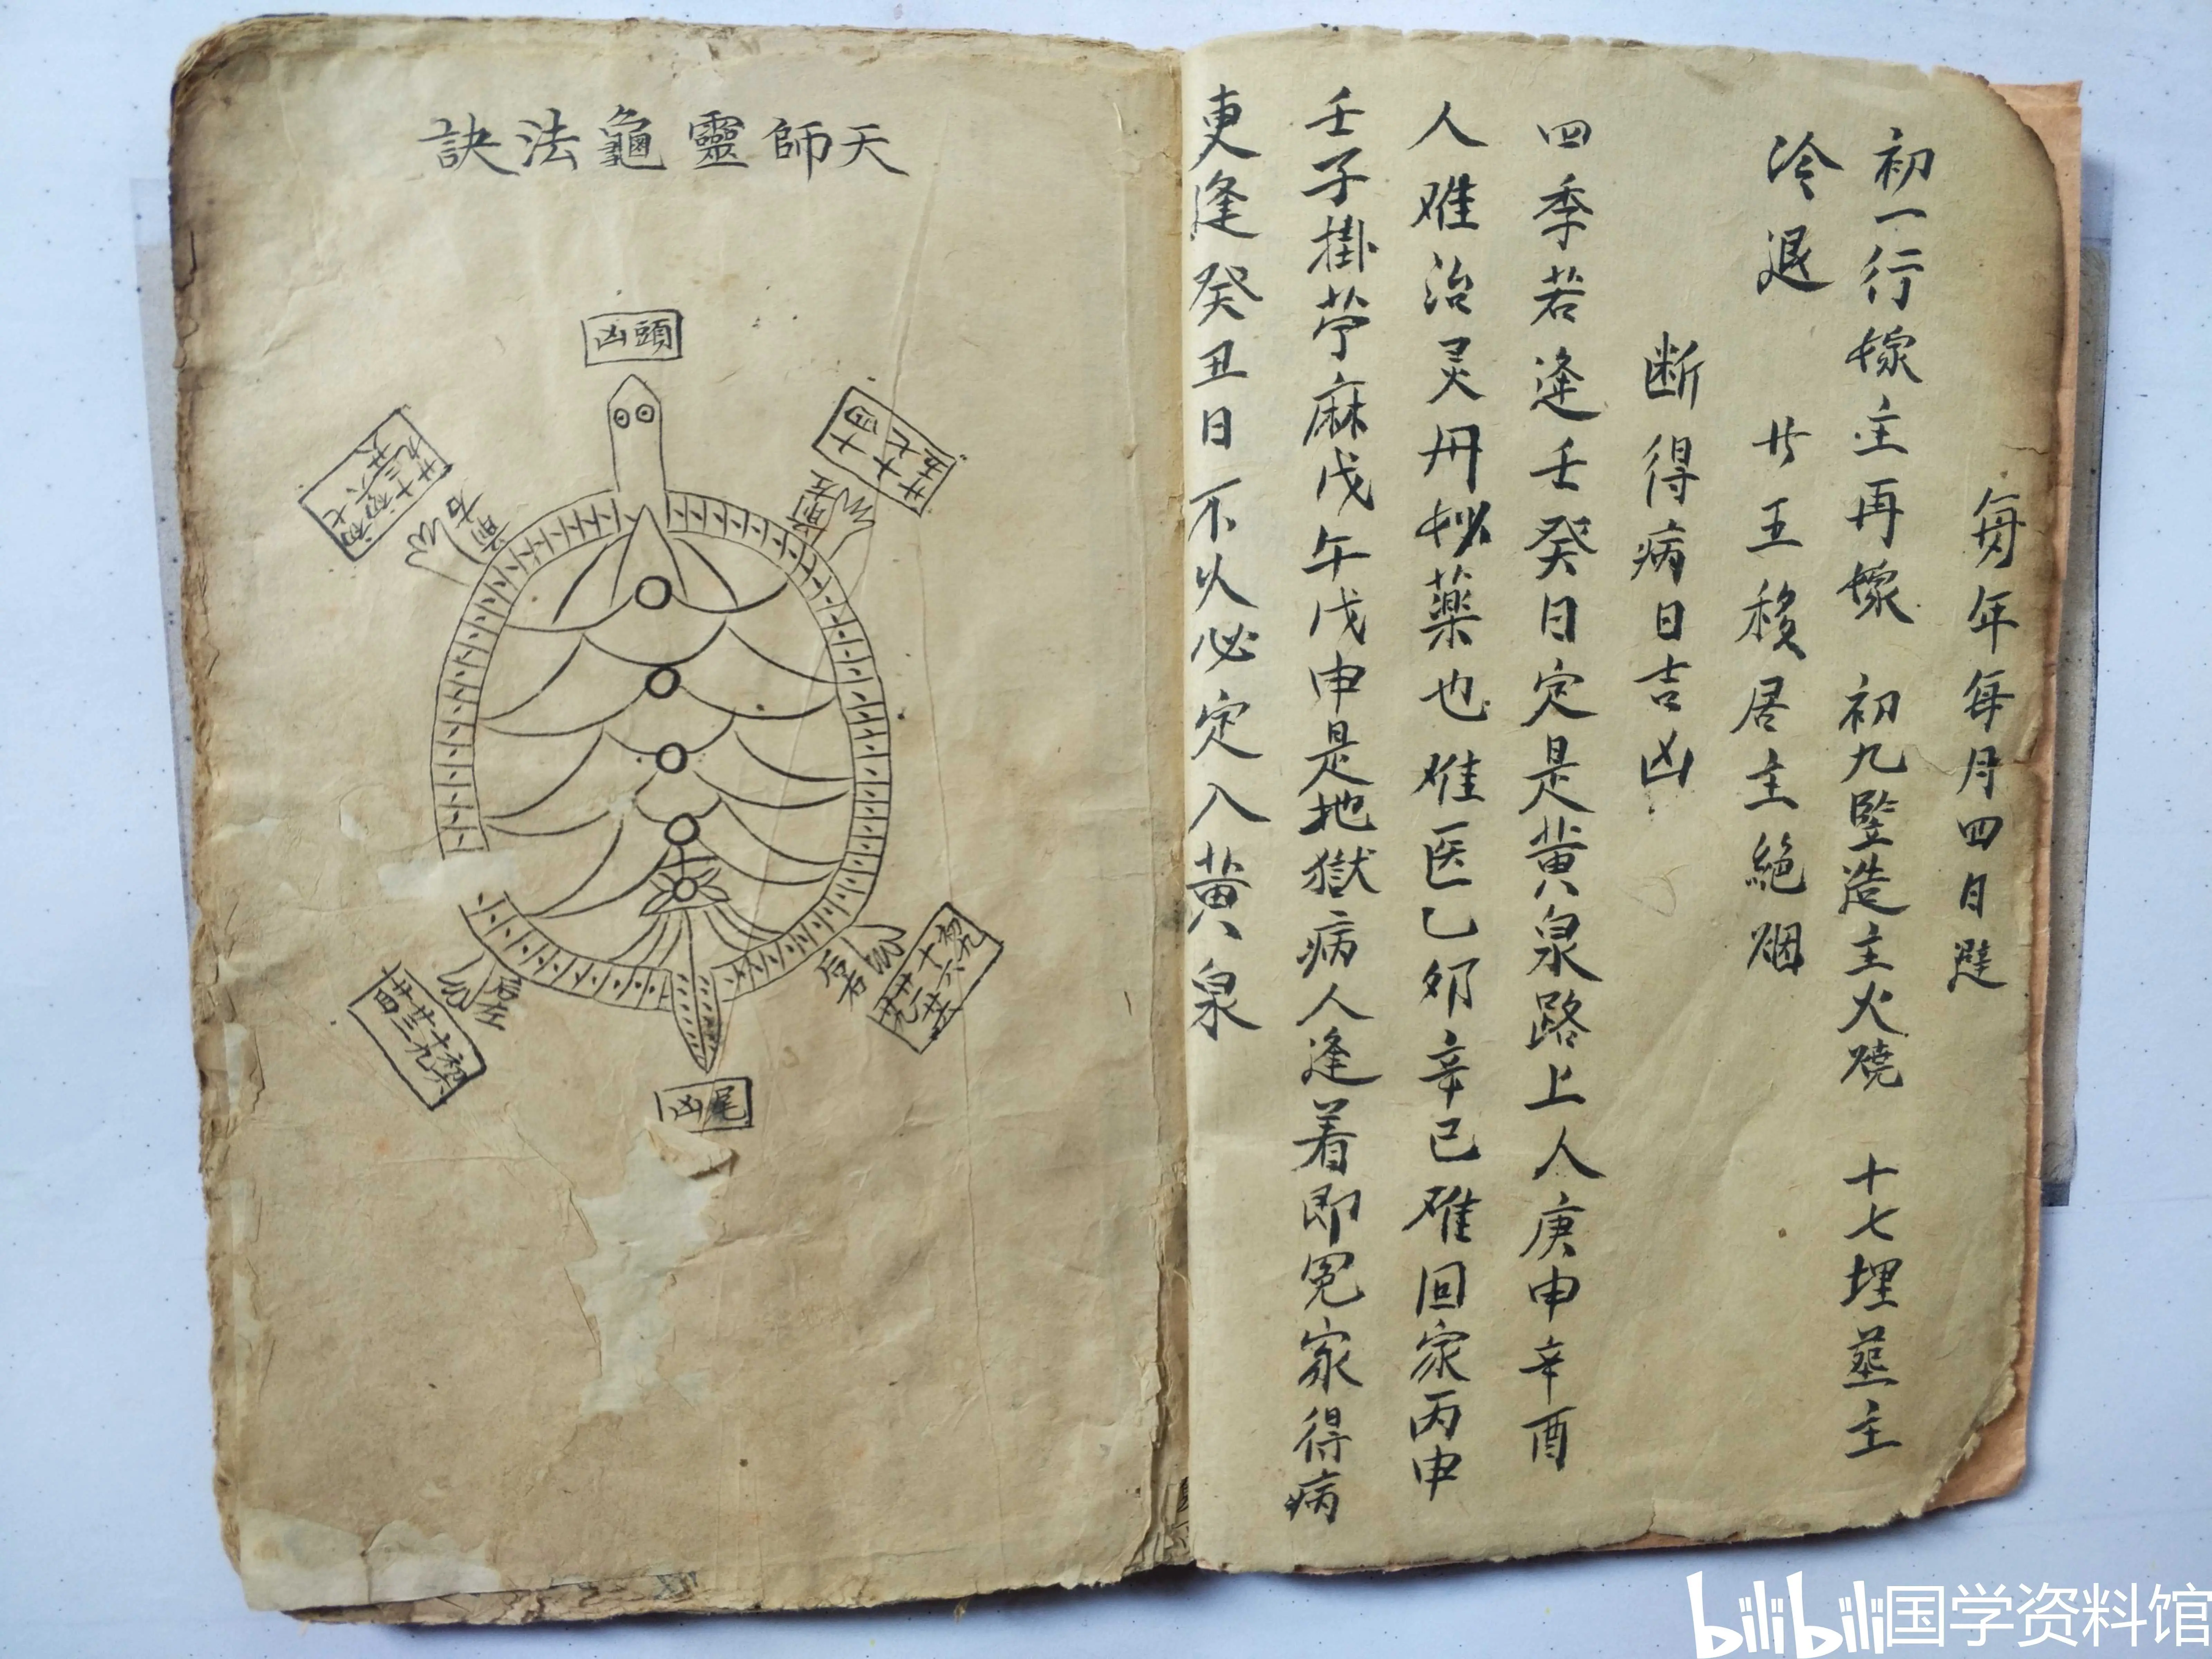 每年每月四日避
初一行嫁主再嫁 初九竪造主火燒 十七埋葬主
冷退 廿五移居主絕烟
断得病日吉凶
四季若逢壬癸日定是黄泉路上人庚申辛酉
人难治灵丹妙藥也难医乙卯辛已难回家丙申
壬子掛苧麻戊午戊申是地獄病人逢着即冤家得病
更逢癸丑日不久必定入黄泉
天師靈龜法訣
頭凶
前左
前右
后左
后右
尾凶
bilibili国学资料馆